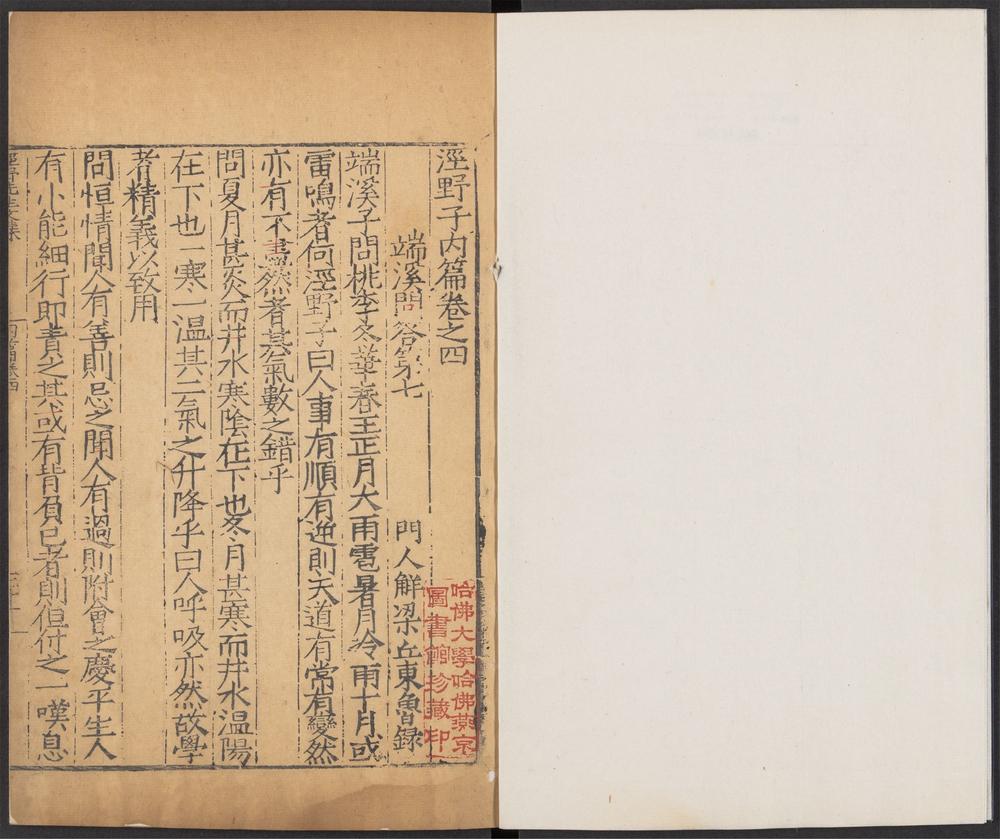 涇野子內篇卷之四
端溪問答第七
門人解梁丘東魯録
端溪子問桃李冬華春王正月大雨雹暑月冷雨十月或
雷鳴者何涇野子曰人事有順有逆則天道有常有變然
亦有不盡然者其氣數之錯乎
問夏月甚炎而井水寒陰在下也冬月甚寒而井水温陽
在下也一寒一温其二氣之升降乎曰人呼吸亦然故學
者精義以致用
問恒情聞人有善則忌之聞人有過則附會之慶平生人
有小能細行即青之其或有背負已者則但付之一嘆息
哈佛大學哈佛燕京
圖書館珍藏印